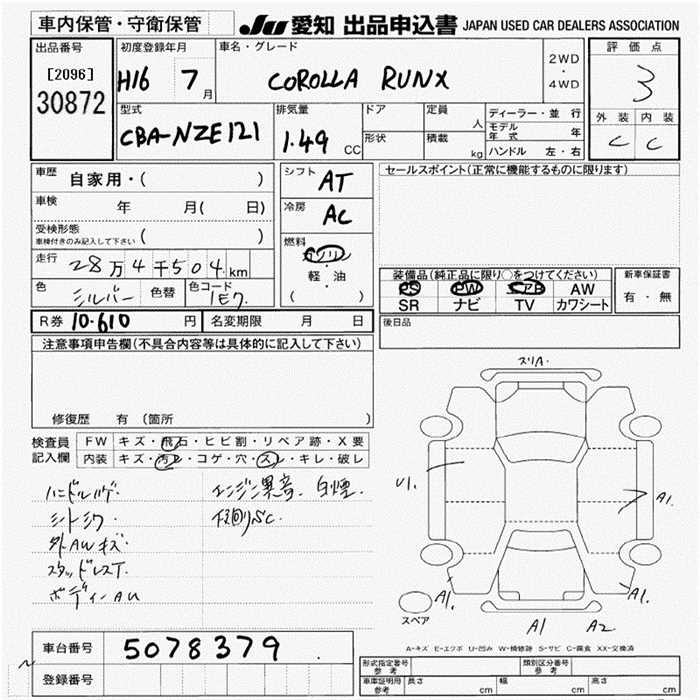 車内保管・守衛保管
JU 愛知 出品申込書 JAPAN USED CAR DEALERS ASSOCIATION
出品番号
[2096]
30872
初度登録年月
H16 7月
車名・グレード
COROLLA RUNX
2WD
・
4WD
評価点
3
外装 内装
C C
型式
CBA-NZE121
排気量
1.49 CC
ドア
形状
定員
人
積載
kg
ディーラー・並行
モデル年式 年
ハンドル 左・右
車歴 自家用・( )
車検 年 月( 日)
受検形態
車検付きのみ記入して下さい ( )
走行 28万4千504km
色 シルバー 色替 色コード 1E7.
シフト AT
冷房 AC
燃料
ガソリン
軽・油
( )
セールスポイント(正常に機能するものに限ります)
装備品(純正品に限り○をつけてください)
PS PW エアB AW
SR ナビ TV カワシート
新車保証書
有・無
R券 10-610 円 名変期限 月 日
後日品
注意事項申告欄(不具合内容等は具体的に記入して下さい)
修復歴 有 (箇所 )
検査員記入欄
FW キズ・飛石・ヒビ割・リペア跡・X要
内装 キズ・汚レ・コゲ・穴・スレ・キレ・破レ
ハンドルハゲ. エンジン異音. 白煙.
シートシワ. 下回りSC.
外AWキズ
スタッドレスT.
ボディーAU
スリA.
U1.
A1.
A1.
A1.
スペア
A1 A2
A-キズ E-エクボ U-凹み W-補修跡 S-サビ C-腐食 XX-交換済
車台番号 5078379
登録番号
形式指定番号
参考
類別区分番号
参考
車庫証明用
参考
長さ cm 幅 cm 高さ cm